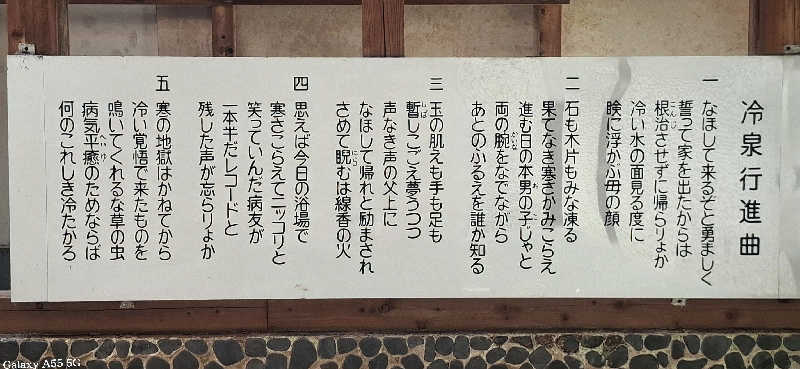 冷泉行進曲
一 なほして来るぞと勇ましく
誓って家を出たからは
根治させずに帰らりょか
冷い水の面見る度に
瞼に浮かぶ母の顔
二 石も木片もみな凍る
果てなき寒さかみこらえ
進む日の本男の子じゃと
両の腕をなでながら
あとのふるえを誰か知る
三 玉の肌えも手も足も
暫しこごえ夢うつつ
声なき声の父上に
なほして帰れと励まされ
さめて睨むは線香の火
四 思えば今日の浴場で
寒さこらえてニッコリと
笑っていんだ病友が
一本半だレコードと
残した声が忘らりょか
五 寒の地獄はかねてから
冷い覚悟で来たものを
鳴いてくれるな草の虫
病気平癒のためならば
何のこれしき冷たかろ
Galaxy A55 5G